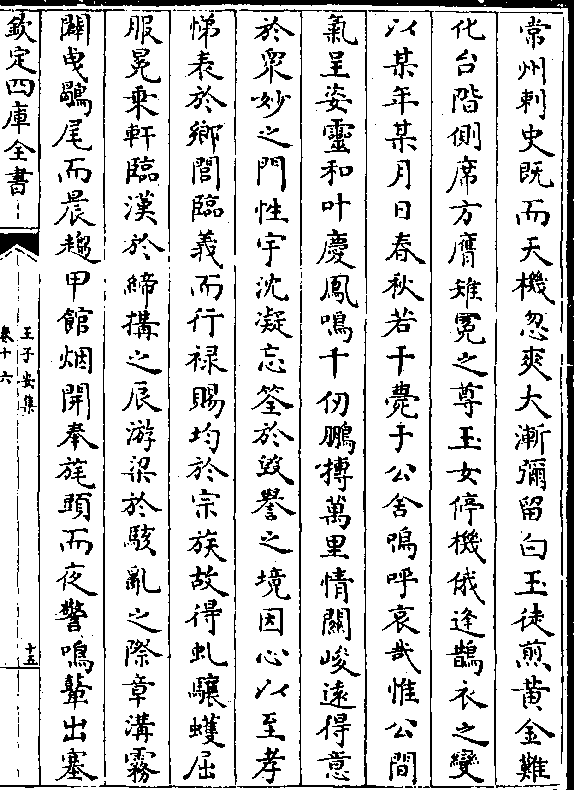 常州刺史既而天機忽爽大漸彌留白玉徒煎黄金難
化台階側席方膺雉冕之尊玉女停機俄逢鵲衣之變
以某年某月日春秋若干薨于公舍嗚呼哀哉惟公間
氣呈姿靈和叶慶鳳鳴千仞鵬摶萬里情關峻遠得意
於衆妙之門性宇沈凝忘筌於毀譽之境因心以至孝
悌表於鄉閭臨義而行禄賜均於宗族故得虬驤蠖屈
服冕乘軒臨漢於締搆之辰游梁於駭亂之際章溝霧
闢曳鶡尾而晨趨甲館烟開奉旄頭而夜警鳴鼙出塞
欽定四庫全書
王子安集
卷十六
十五